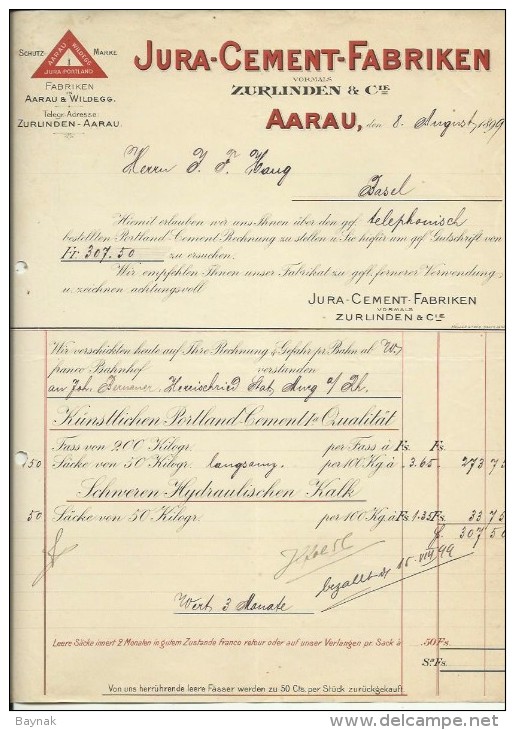 SCHUTZ- MARKE
AARAU WILDEGG
1
JURA-PORTLAND
FABRIKEN
IN
AARAU & WILDEGG.
Telegr.-Adresse
ZURLINDEN-AARAU.
JURA-CEMENT-FABRIKEN
VORMALS
ZURLINDEN & CIE
AARAU, den 8. August 1899
Herrn J. F. Haug
Basel
Hiemit erlauben wir uns Ihnen über den ggf. telephonisch
bestellten Portland-Cement Rechnung zu stellen u. Sie hiefür um ggf. Gutschrift von
Fr. 307.50 zu ersuchen.
Wir empfehlen Ihnen unser Fabrikat zu ggfl. fernerer Verwendung
u. zeichnen achtungsvoll
JURA-CEMENT-FABRIKEN
VORMALS
ZURLINDEN & CIE
Wir verschickten heute auf Ihre Rechnung & Gefahr pr. Bahn ab W.
franco Bahnhof verstanden
an Joh. Herrischried Stat. Murg a/Rh.
Künstlichen Portland-Cement Ia Qualität
Fass von 200 Kilogr. per Fass à Fs. Fs.
150 Säcke von 50 Kilogr. langsamz. per 100 Kg. à „ 3.65 „ 273 75
Schweren Hydraulischen Kalk
50 Säcke von 50 Kilogr. per 100 Kg. à Fs. 1.35 Fs. 33 75
f. 307 50
bezahlt d. 15. VIII 99
Wert 3 Monate
Leere Säcke innert 2 Monaten in gutem Zustande franco retour oder auf unser Verlangen pr. Sack à „ 50 Fs.
Sa. Fs.
Von uns herrührende leere Fässer werden zu 50 Cts. per Stück zurückgekauft.
Baynak
delcampe.net